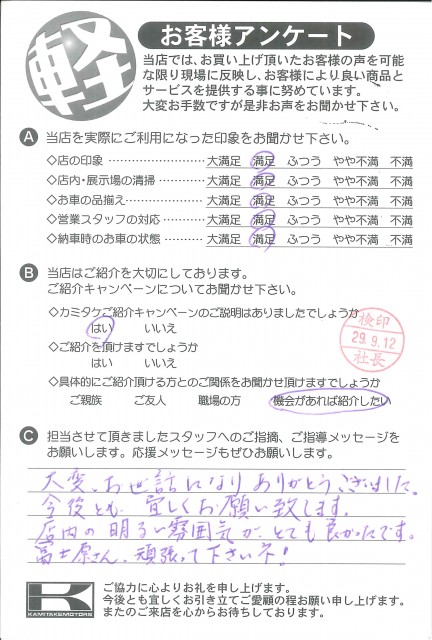 軽
お客様アンケート
当店では、お買い上げ頂いたお客様の声を可能
な限り現場に反映し、お客様により良い商品と
サービスを提供する事に努めています。
大変お手数ですが是非お声をお聞かせ下さい。
A 当店を実際にご利用になった印象をお聞かせ下さい。
◇店の印象 ………………… 大満足 満足 ふつう やや不満 不満
◇店内・展示場の清掃 ………… 大満足 満足 ふつう やや不満 不満
◇お車の品揃え ……………… 大満足 満足 ふつう やや不満 不満
◇営業スタッフの対応 ………… 大満足 満足 ふつう やや不満 不満
◇納車時のお車の状態 ………… 大満足 満足 ふつう やや不満 不満
B 当店はご紹介を大切にしております。
ご紹介キャンペーンについてお聞かせ下さい。
◇カミタケご紹介キャンペーンのご説明はありましたでしょうか
はい いいえ
◇ご紹介を頂けますでしょうか
はい いいえ
検印
29.9.12
社長
◇具体的にご紹介頂ける方とのご関係をお聞かせ頂けますでしょうか
ご親族 ご友人 職場の方 機会があれば紹介したい
C 担当させて頂きましたスタッフへのご指摘、ご指導メッセージを
お願いします。応援メッセージもぜひお願いします。
大変、お世話になりありがとうございました。
今後とも、宜しくお願い致します。
店内の明るい雰囲気が、とても良かったです。
冨士原さん、頑張って下さいネ!
K
KAMITAKEMOTORS
ご協力に心よりお礼を申し上げます。
今後とも宜しくお引き立てご愛顧の程お願い申し上げます。
またのご来店を心からお待ちしております。